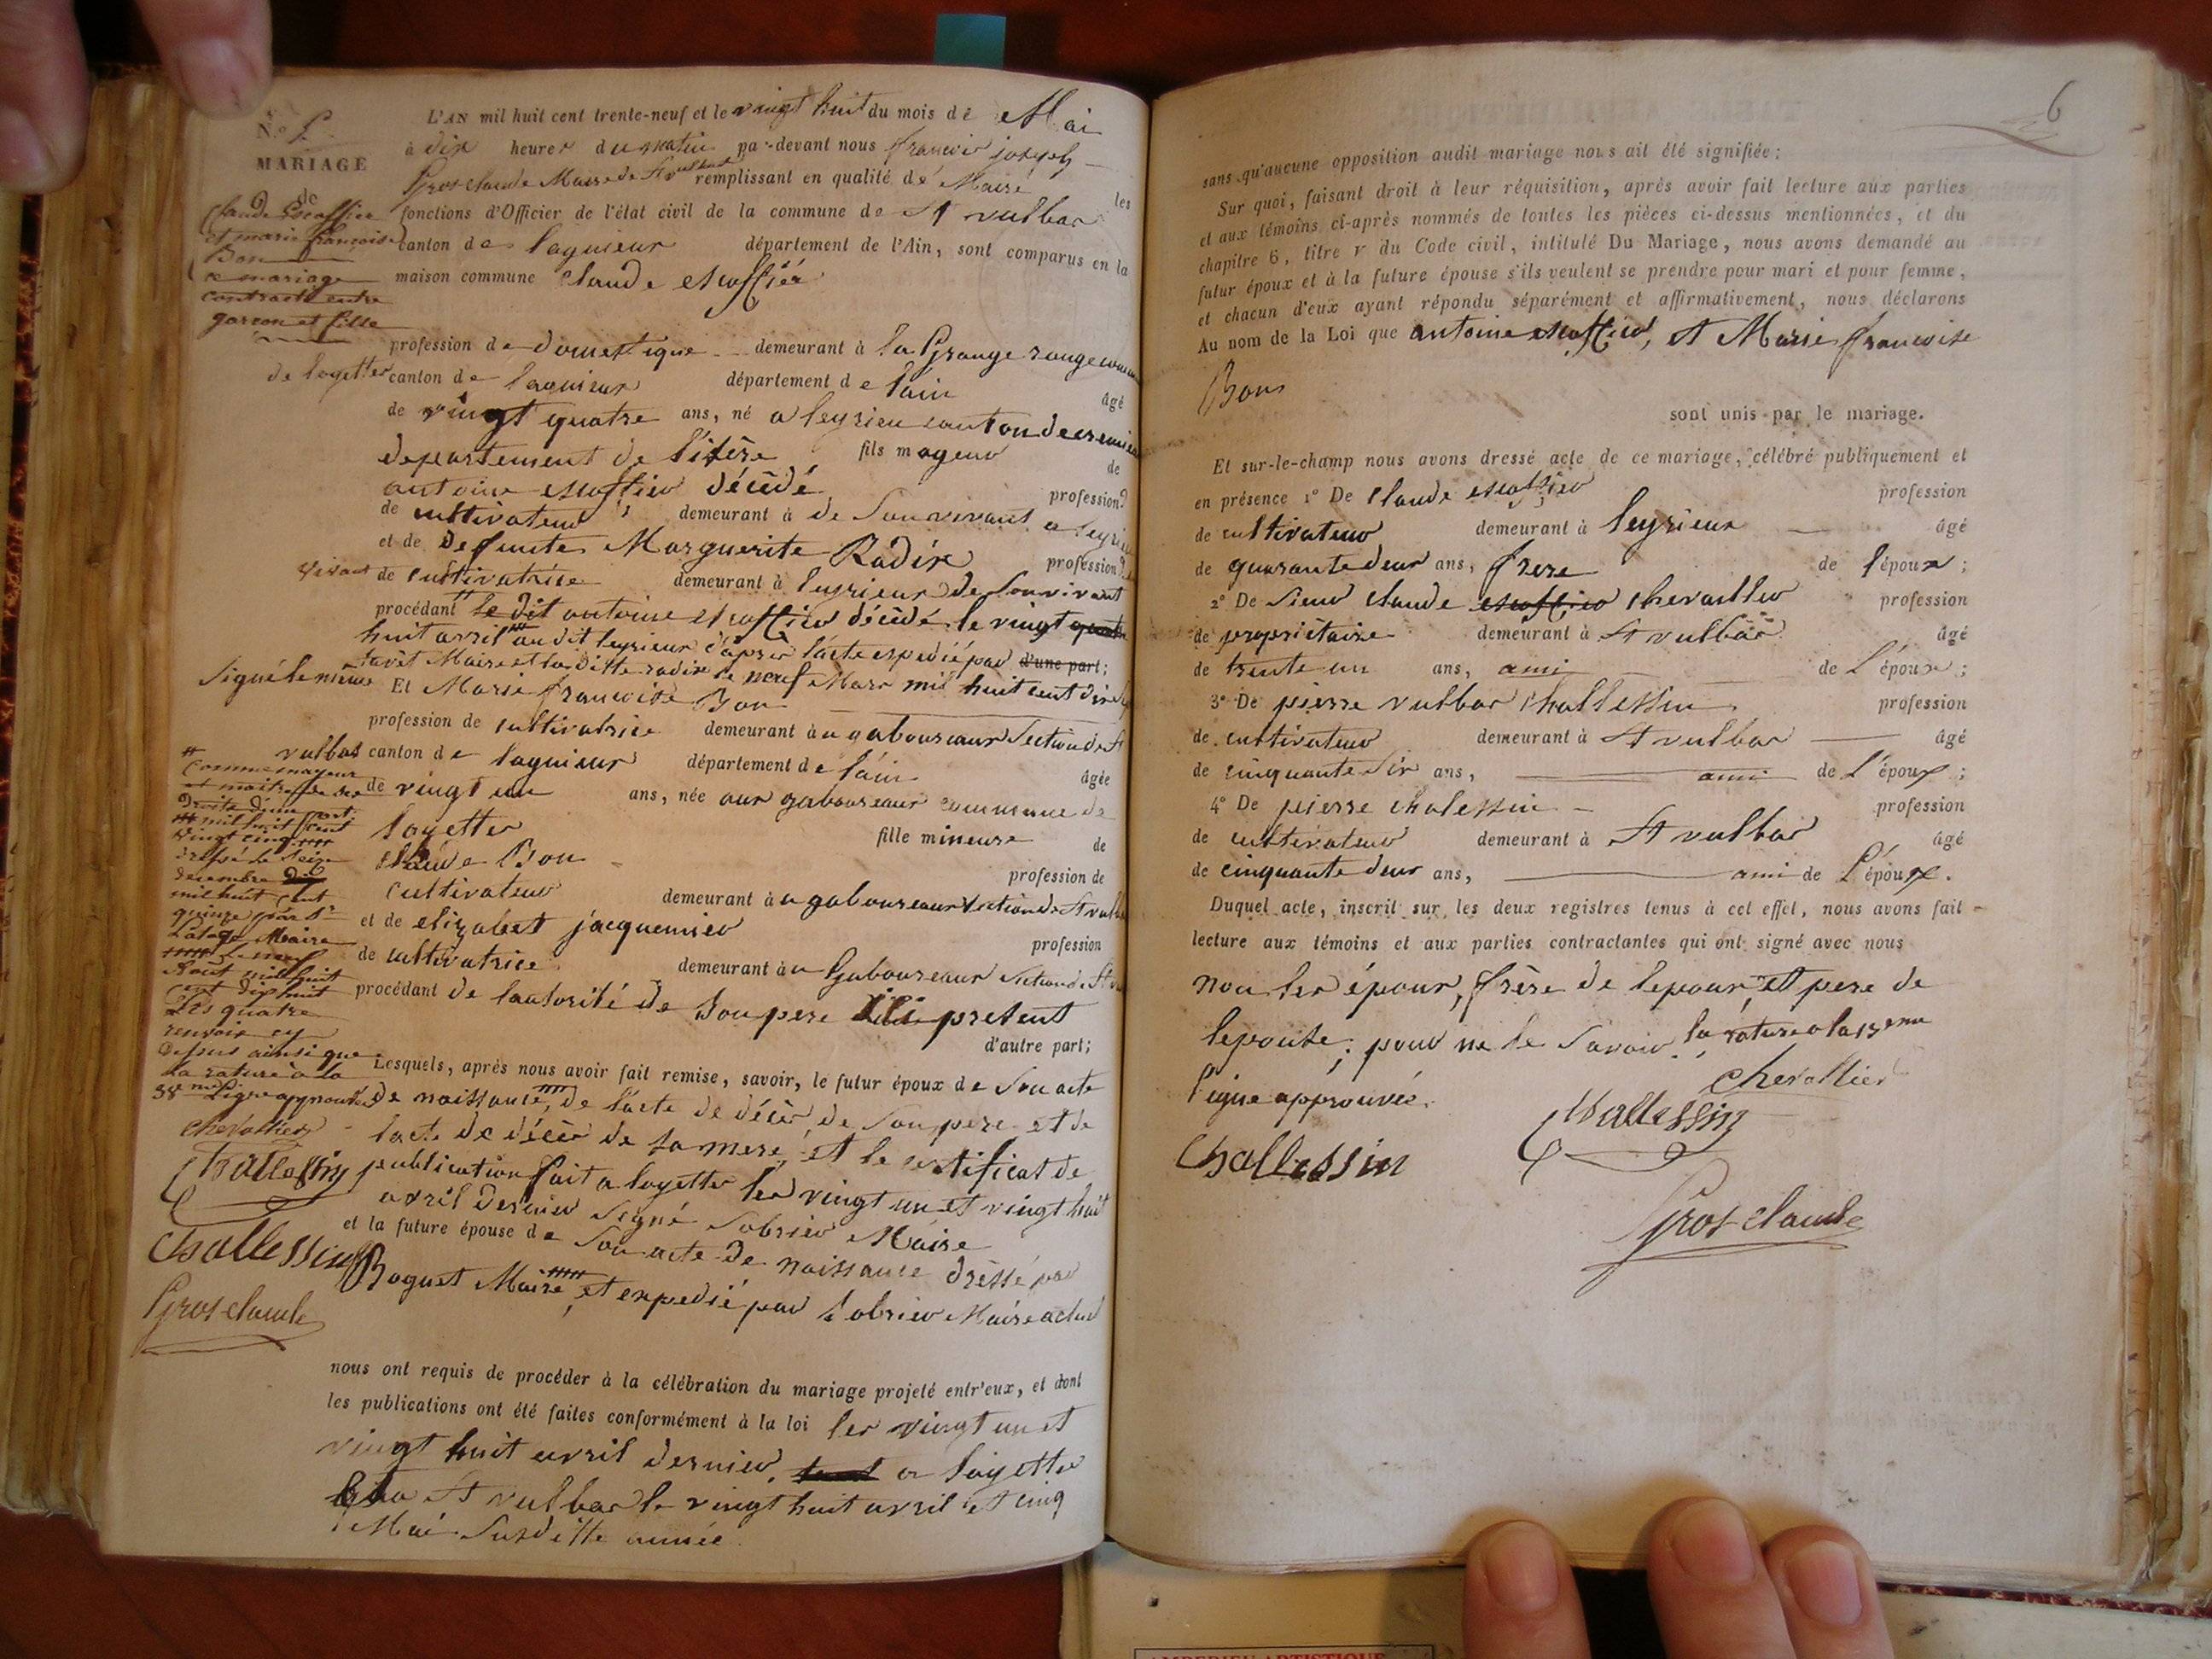 N.o
MARIAGE
de
Claude Escoffier
et marie françoise
Bon
ce mariage
contracté entre
garcon et fille
L'AN mil huit cent trente-neuf et le vingt huit du mois de Mai
à dix heures du matin par-devant nous francois joseph
Gros claude Maire de St vulbas remplissant en qualité de Maire les
fonctions d'Officier de l'état civil de la commune de St vulbas
canton de lagnieur département de l'Ain, sont comparus en la
maison commune Claude escoffier
profession de domestique demeurant à la Grange rouge commune
de loyettes canton de lagnieur département de lain âgé
de vingt quatre ans, né a leyrieu canton de cremieu
departement de l'isère fils mageur de
antoine escoffier décédé profession
de cultivateur demeurant à de son vivant a leyrieu
et de defunte Marguerite Radix profession
vivant de cultivatrice demeurant à leyrieur de son vivant
procédant le dit antoine escoffier décédé le vingt
huit avril au dit leyrieur d'après l'acte expedié par d'une part;
Maire et la ditte radix le neuf Mars mil huit cent dix
Signé le même
Et Marie francoise Bon
profession de cultivatrice demeurant à a gaboureaux Section de St
vulbas canton de lagnieur département de lain âgée
de vingt un ans, née aux gaboureaux commune de
loyettes fille mineure de
claude Bon
cultivateur profession de
demeurant à a gaboureaux section de St vulbas
et de elizabeet jacquemier profession
de cultivatrice demeurant à a Gaboureaux Section de St
procédant de lautorité de Son pere ici present
d'autre part;
comme mageur
et maitre de ses
droits d'une part
mil huit cent
vingt cinq
dressé le Seize
decembre
mil huit cent
quinze par
Maire
le neuf
Août mil huit
cent dix huit
Les quatre
renvois cy
dessus ainsi que
la rature à la
38me Ligne approuvée
chevallier
Challessin
Challessin
Gros claude
Lesquels, après nous avoir fait remise, savoir, le futur époux de Son acte
de naissance, de l'acte de décès, de Son pere et de
lacte de décès de sa mere, et le certificat de
publication fait a loyettes les vingt un et vingt huit
avril dernier Signé Sobrier Maire
et la future épouse de Son acte de naissance dressé par
Boguet Maire et expedié par Sobrier Maire actuel
nous ont requis de procéder à la célébration du mariage projeté entr'eux, et dont
les publications ont été faites conformément à la loi les vingt un et
vingt huit avril dernier, a loyettes
St vulbas le vingt huit avril et cinq
Mai Susditte année
6
sans qu'aucune opposition audit mariage nous ait été signifiée;
Sur quoi, faisant droit à leur réquisition, après avoir fait lecture aux parties
et aux témoins ci-après nommés de toutes les pièces ci-dessus mentionnées, et du
chapitre 6, titre v du Code civil, intitulé Du Mariage, nous avons demandé au
futur époux et à la future épouse s'ils veulent se prendre pour mari et pour femme,
et chacun d'eux ayant répondu séparément et affirmativement, nous déclarons
Au nom de la Loi que antoine escoffier, et Marie francoise
Bon
sont unis par le mariage.
Et sur-le-champ nous avons dressé acte de ce mariage, célébré publiquement et
en présence 1o De Claude escoffier profession
de cultivateur demeurant à leyrieux âgé
de quarante deux ans, frere de l'époux;
2o De Sieur Claude escoffier chevallier profession
de propriétaire demeurant à St vulbas âgé
de trente un ans, ami de L'époux;
3o De pierre vulbas Challessin profession
de cultivateur demeurant à St vulbas âgé
de cinquante Six ans, ami de L'époux;
4o De pierre chalessin profession
de cultivateur demeurant à St vulbas âgé
de cinquante deux ans, ami de L'époux.
Duquel acte, inscrit sur les deux registres tenus à cet effet, nous avons fait
lecture aux témoins et aux parties contractantes qui ont signé avec nous
non les époux, frère de lepoux, et pere de
lepouse, pour ne le Savoir, la rature a la 13eme
ligne approuvée.
Chevallier
Challessin
Challessin
Gros claude
AMBERIEU ARTISTIQUE